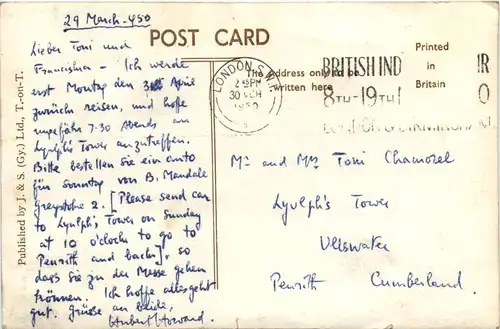 29 March - 450
POST CARD
Lieber Toni und
Franziska - Ich werde
erst Montag den 3. April
zurück reisen, und hoffe
ungefähr 7.30 Abends am
Lyulph's Tower anzutreffen.
Bitte bestellen Sie ein auto
für Sonntag von B. Mandale
Greystoke 2. [Please send car
to Lyulph's Tower on Sunday
at 10 o'clock to go to
Penrith and back], so
dass sie zu der Messe gehen
können. Ich hoffe alles geht
gut. Grüsse an beide,
Hubert Howard.
Published by J. & S. (Gy.) Ltd., T.-on-T.
The Address only to be
written here
Printed
in
Britain
LONDON S.W.1
2 15 PM
30 MCH
1950
BRITISH IND
8TH-19TH
R
O
Mr and Mrs Toni
Lyulph's Tower
Ullswater
Penrith Cumberland.